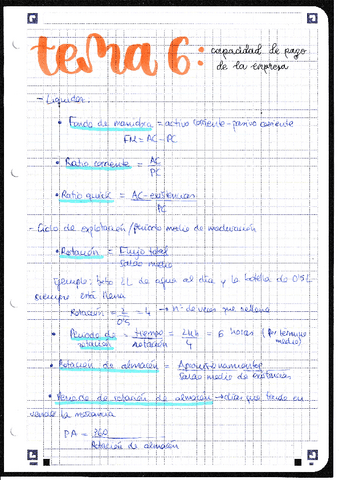 tema 6: capacidad de pago
de la empresa
- Liquidez.
• Fondo de maniobra = activo corriente - pasivo corriente
FM = AC - PC
• Ratio corriente = AC
PC
• Ratio quick = AC - existencias
PC
- Ciclo de explotación / periodo medio de maduración
• Rotación = Flujo total
Saldo medio
Ejemplo: bebo 2L de agua al día y la botella de 0'5L
siempre está llena
Rotación = 2 = 4 → nº de veces que relleno
0'5
• Periodo de = tiempo = 24h = 6 horas (por término
rotación rotación 4 medio)
• Rotación de almacén = Aprovisionamientos
Saldo medio de existencias
• Periodo de rotación de almacén → días que tarda en
la mercancía
PA = 360
Rotación de almacén